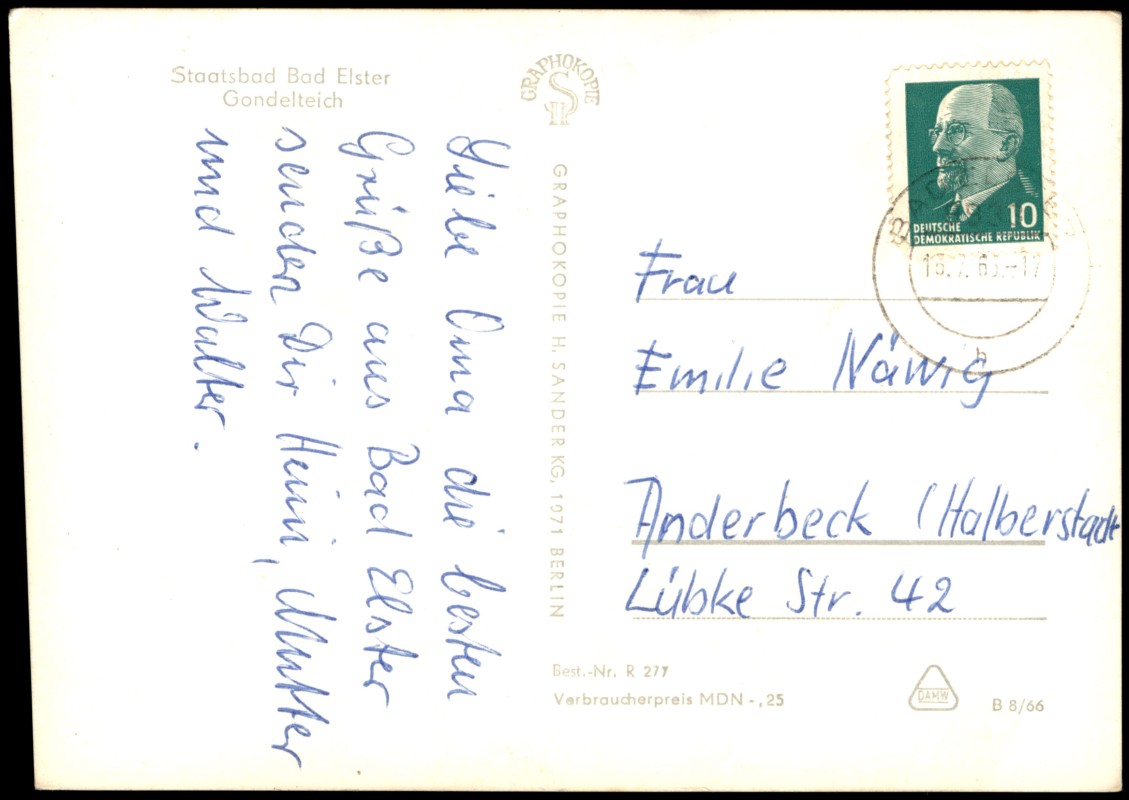 Staatsbad Bad Elster
Gondelteich
Liebe Oma die besten
Grüße aus Bad Elster
senden Dir Heini, Mutter
und Walter.
GRAPHOKOPIE
H S
GRAPHOKOPIE H. SANDER KG, 1071 BERLIN
10
DEUTSCHE
DEMOKRATISCHE REPUBLIK
BAD
Frau
Emilie Näwig
Anderbeck (Halberstadt
Lübke Str. 42
Best.-Nr. R 277
Verbraucherpreis MDN -,25
DAMW
B 8/66